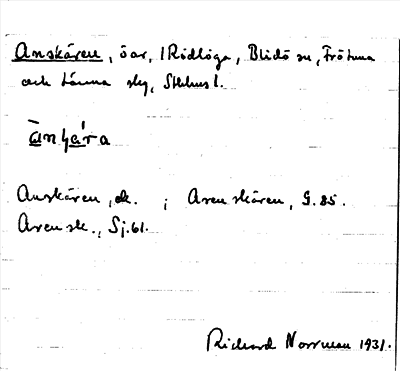 Anskären, öar, i Rödlöga, Blidö sn, Frötuna
och Länna skg, Sthlms l.
Anskären, ek. ; Arenskären, G. 85.
Arensk., Sj. 61.
Richard Norrman 1931.